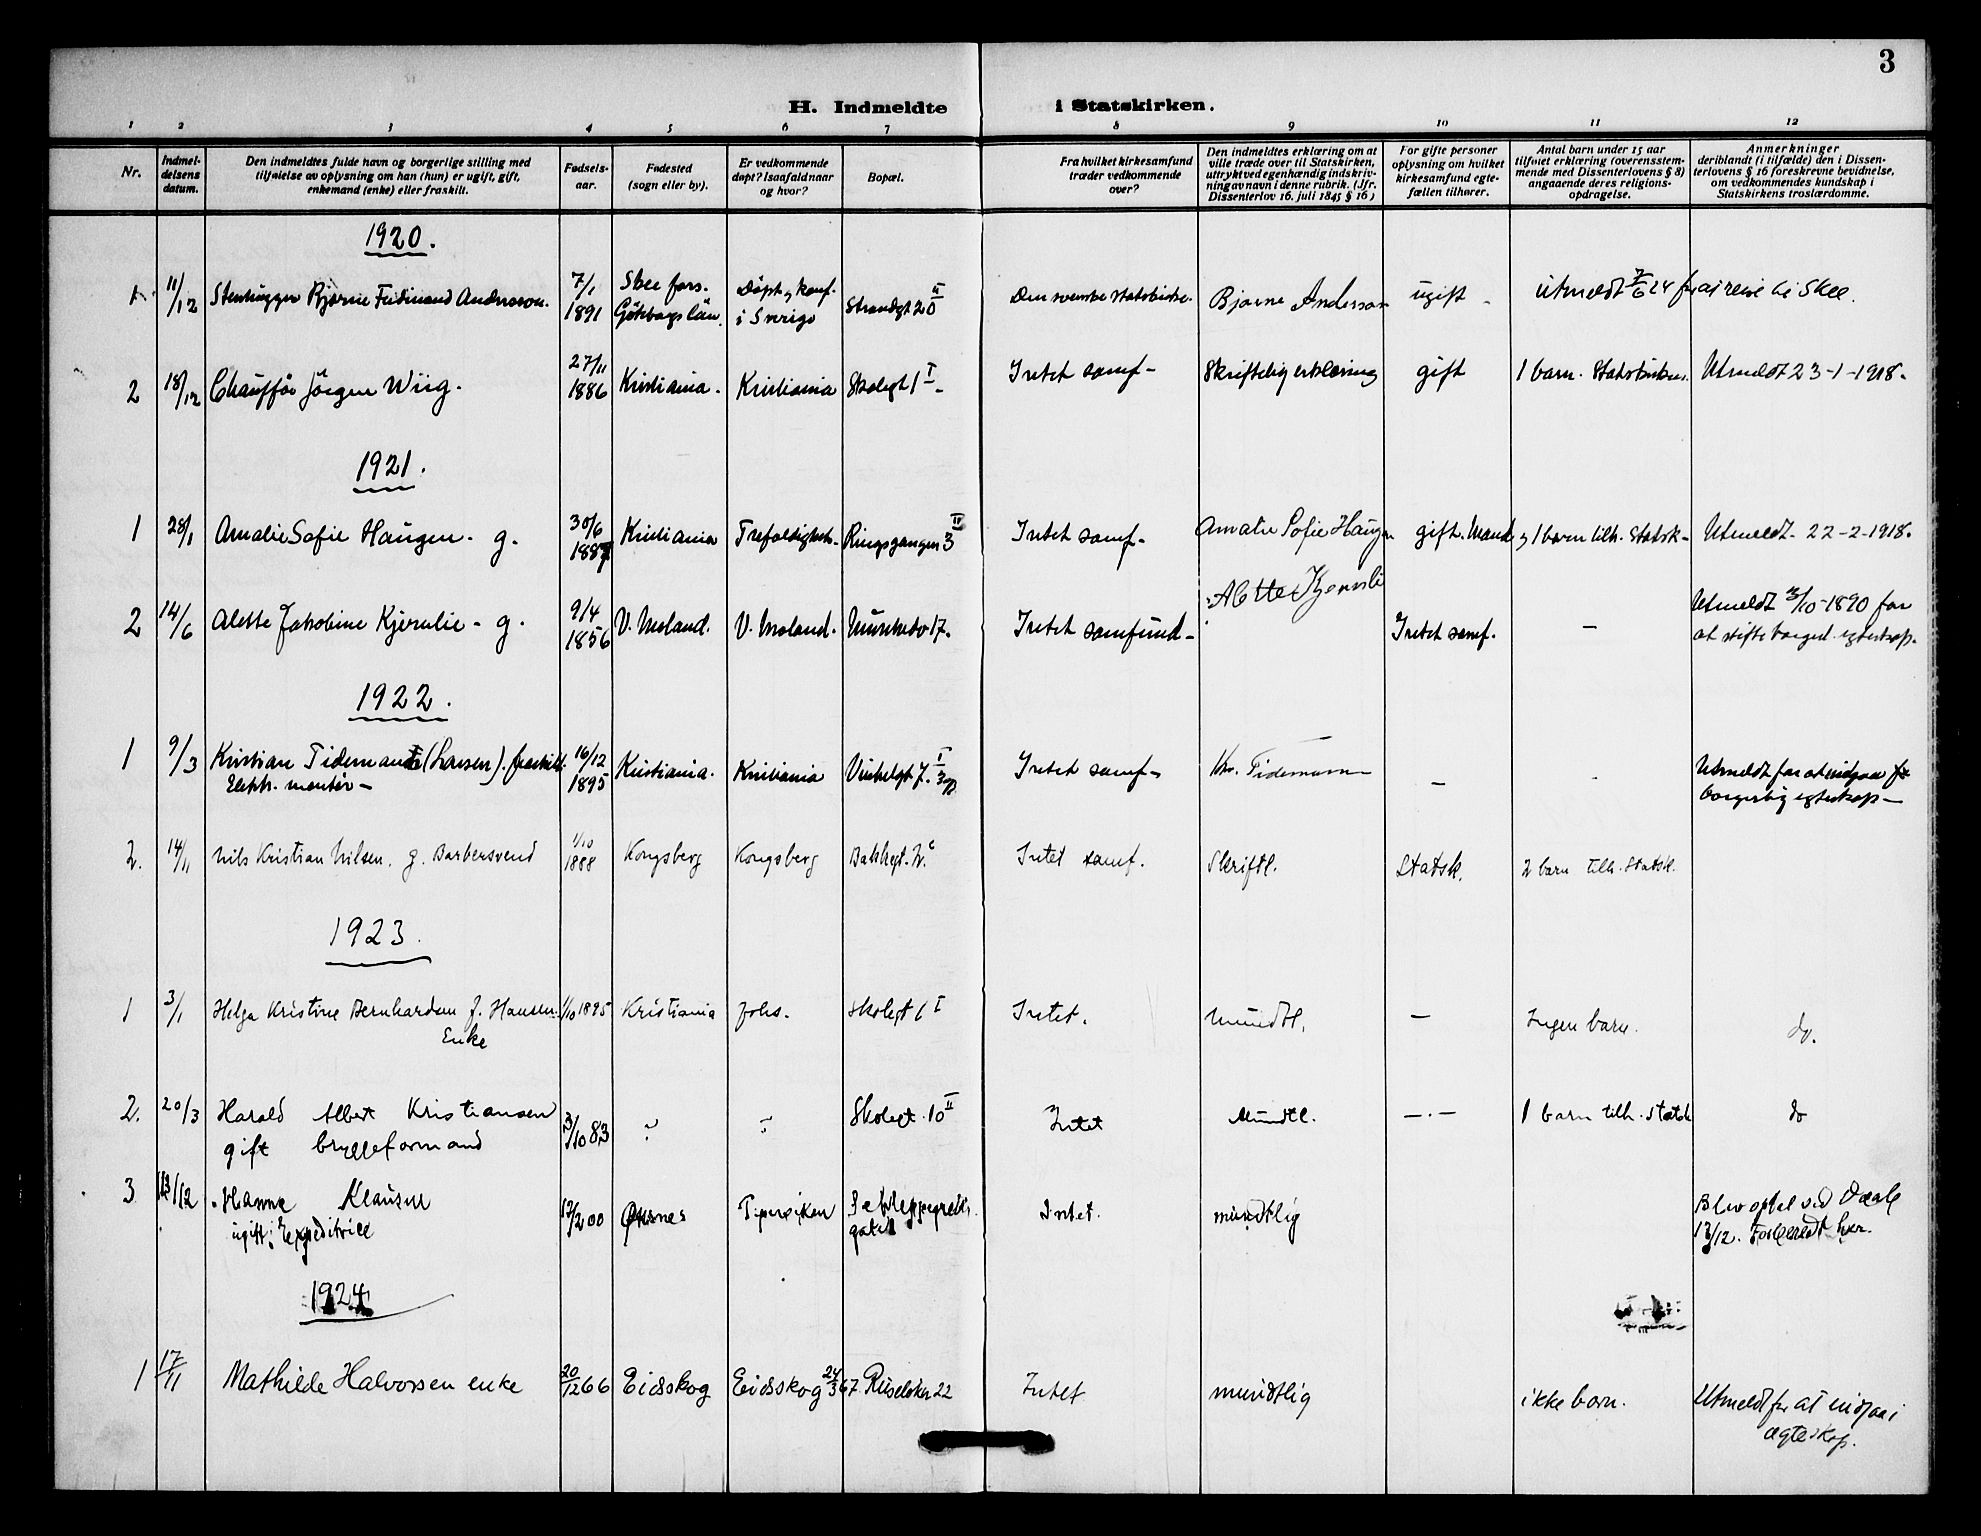 3
H. Indmeldte i Statskirken.
1 2 3 4 5 6 7 8 9 10 11 12
Nr.
Indmel-
delsens
datum.
Den indmeldtes fulde navn og borgerlige stilling med
tilføielse av oplysning om han (hun) er ugift, gift,
enkemand (enke) eller fraskilt.
Fødsels-
aar.
Fødested
(sogn eller by).
Er vedkommende
døpt? Isaafald naar
og hvor?
Bopæl.
Fra hvilket kirkesamfund
træder vedkommende
over?
Den indmeldtes erklæring om at
ville træde over til Statskirken,
uttrykt ved egenhændig indskriv-
ning av navn i denne rubrik. (Jfr.
Dissenterlov 16. juli 1845 § 16)
For gifte personer
oplysning om hvilket
kirkesamfund egte-
fællen tilhører.
Antal barn under 15 aar
tilføiet erklæring (overensstem-
mende med Dissenterlovens § 8)
angaaende deres religions-
opdragelse.
Anmerkninger
deriblandt (i tilfælde) den i Dissen-
terlovens § 16 foreskrevne bevidnelse,
om vedkommendes kundskap i
Statskirkens troslærdomme.
1920.
1. 11/12 Stenhugger Bjarne Ferdinand Andersson. 7/1 1891 Skee fors. Göteborgs län. Døpt og konf. i Sverige Strandgt 20 II Den svenske statskirke. Bjarne Andersson ugift - Utmeldt 7/6 24 for at reise til Skee.
2 18/12 Chauffør Jørgen Wiig. 27/11 1886 Kristiania. Kristiania Skolegt 1 I - Intet samf- Skriftelig erklæring gift 1 barn. Statskirken. Utmeldt 23-1-1918.
1921.
1 28/1 Amalie Sofie Haugen. g. 30/6 1887 Kristiania Trefoldighets. Ringsgangen 3 II Intet samf- Amalie Sofie Haugen gift. Mand og 1 barn tilh. Statsk- Utmeldt. 22-2-1918.
2 14/6 Alette Jakobine Kjernlie - g. 9/4 1856 V. Moland. V. Moland. Munkedv 17. Intet samfund- Alette Kjernli Intet samf. - Utmeldt 3/10-1890 for
at stifte borgerl. egteskap.
1922.
1 9/3 Kristian Tidemand (Larsen). fraskilt. 16/12 1895 Kristiania. Kristiania Vinkelgt 7. I 3 op. Intet samf- Kr. Tidemann - - Utmeldt for at indgaa
Elektr. montør - borgerlig egteskap-
2. 14/11 Nils Kristian Nilsen. g. Barbersvend 1/10 1888 Kongsberg Kongsberg Intet samf. Skriftl. Statsk. 2 barn tilh. Statsk.
1923.
1 3/1 Helga Kristine Bernhardsen f. Hansen. 1/10 1895 Kristiania Johs. Skolegt 6 I Intet. Mundtl. - Ingen barn. do.
Enke
2. 20/3 Harald Albert Kristiansen 3/10 83 " " Skolegt. 10 II Intet Mundtl. -.- 1 barn tilh. Statsk do
gift bryggeformand
3 13/12 Hanna Klausen 12/2 00 Intet. mundtlig Blev optat ved
ugift. Expeditrice 13/12. her.
1924
1 17/11 Mathilde Halvorsen enke 20/12 66 Eidsskog Eidsskog 24/3 67 Ruseløkv 22 Intet mundtlig ikke barn. Utmeldt for at indgaa i
ægteskap.